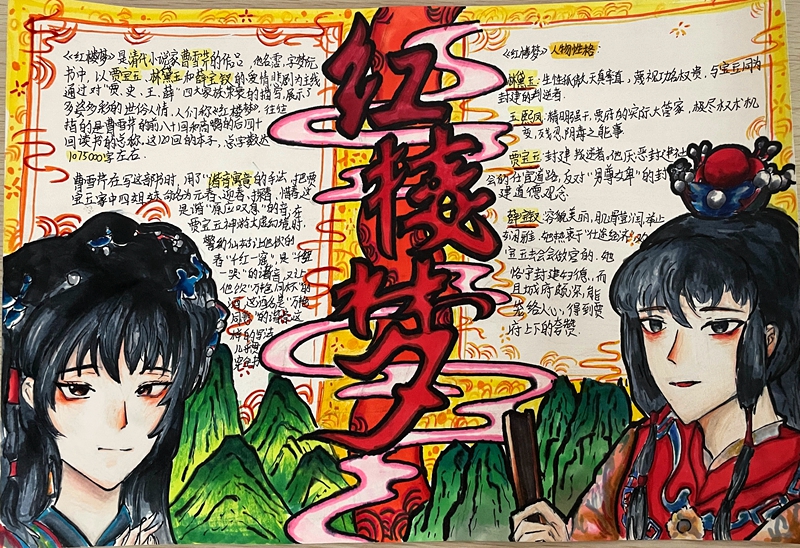 《红楼梦》是清代小说家曹雪芹的作品，他名霑，字梦阮
书中，以贾宝玉、林黛玉和薛宝钗的爱情悲剧为主线
通过对“贾、史、王、薛”四大家族荣衰的描写，展示了
多姿多彩的世俗人情。人们称《红楼梦》，往往
指的是曹雪芹的前八十回和高鹗的后四十
回读书的总称，这120回的本子，总字数达
1075000字左右。
曹雪芹在写这部书时，用了“谐音寓意”的手法，把贾
宝玉家中四姐妹命名为元春、迎春、探春、惜春，这
是谐“原应叹息”的音，在
贾宝玉神游太虚幻境时，
警幻仙姑让他饮的
香“千红一窟”，是“千红
一哭”的谐音，又让
他饮“万艳同杯”的
酒，这酒名是“万艳
同悲”的谐音，这
样的写法
红楼梦
《红楼梦》人物性格：
林黛玉：生性孤傲，天真率直，蔑视功名权贵，与宝玉同为
封建的叛逆者.
王熙凤：精明强干，贾府的实际大管家，极尽权术机
变，残忍阴毒之能事
贾宝玉：封建叛逆者，他厌恶封建社
会的仕宦道路，反对“男尊女卑”的封
建道德观念.
薛宝钗：容貌美丽，肌骨莹润，举止
娴雅，她热衷于“仕途经济”，劝
宝玉去会会做官的，她
恪守封建妇德，而
且城府颇深，能
笼络人心，得到贾
府上下的夸赞.